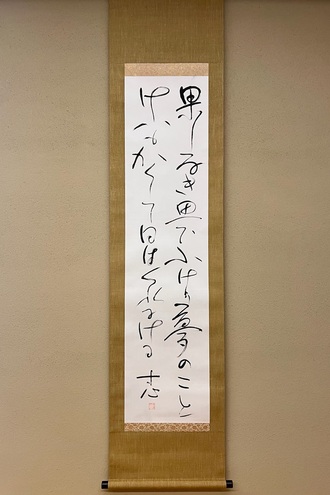 果しなき思ひふけり夢のこと
けふもかくて日はくれにける 志